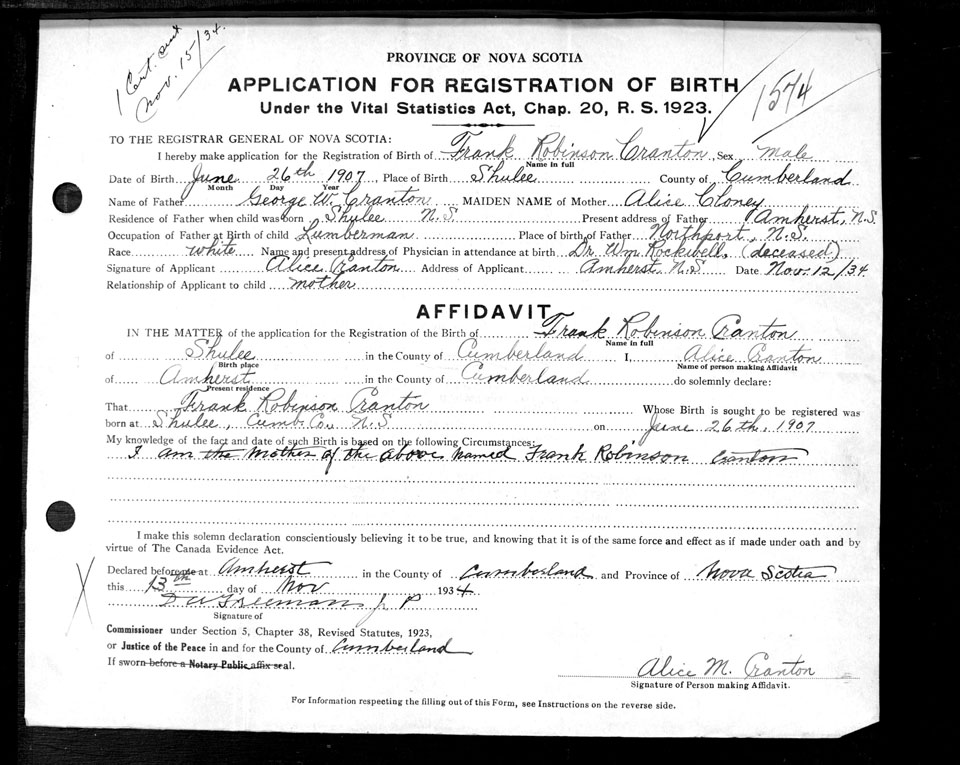 1 Cert. sent
Nov. 15/34.
PROVINCE OF NOVA SCOTIA
APPLICATION FOR REGISTRATION OF BIRTH
Under the Vital Statistics Act, Chap. 20, R. S. 1923.
1574
TO THE REGISTRAR GENERAL OF NOVA SCOTIA:
I hereby make application for the Registration of Birth of Frank Robinson Cranton Sex Male
Name in full
Date of Birth June 26th 1907 Place of Birth Shulee County of Cumberland
Month Day Year
Name of Father George W. Cranton MAIDEN NAME of Mother Alice Cloney
Residence of Father when child was born Shulee N.S. Present address of Father Amherst, N.S.
Occupation of Father at Birth of child Lumberman Place of birth of Father Northport, N.S.
Race White Name and present address of Physician in attendance at birth Dr. Wm Rockwell, (deceased)
Signature of Applicant Alice Cranton Address of Applicant Amherst, N.S. Date Nov. 12/34.
Relationship of Applicant to child mother
AFFIDAVIT
IN THE MATTER of the application for the Registration of the Birth of Frank Robinson Cranton
Name in full
of Shulee in the County of Cumberland I, Alice Cranton
Birth place Name of person making Affidavit
of Amherst in the County of Cumberland do solemnly declare:
Present residence
That Frank Robinson Cranton Whose Birth is sought to be registered was
born at Shulee, Cumb. Co. N.S. on June 26th, 1907
My knowledge of the fact and date of such Birth is based on the following Circumstances:
I am the Mother of the above named Frank Robinson Cranton
I make this solemn declaration conscientiously believing it to be true, and knowing that it is of the same force and effect as if made under oath and by
virtue of The Canada Evidence Act.
Declared before me at Amherst in the County of Cumberland and Province of Nova Scotia
this 13th day of Nov 1934
Freeman J P
Signature of
Commissioner under Section 5, Chapter 38, Revised Statutes, 1923,
or Justice of the Peace in and for the County of Cumberland
If sworn before a Notary Public affix seal.
Alice M. Cranton
Signature of Person making Affidavit.
For Information respecting the filling out of this Form, see Instructions on the reverse side.